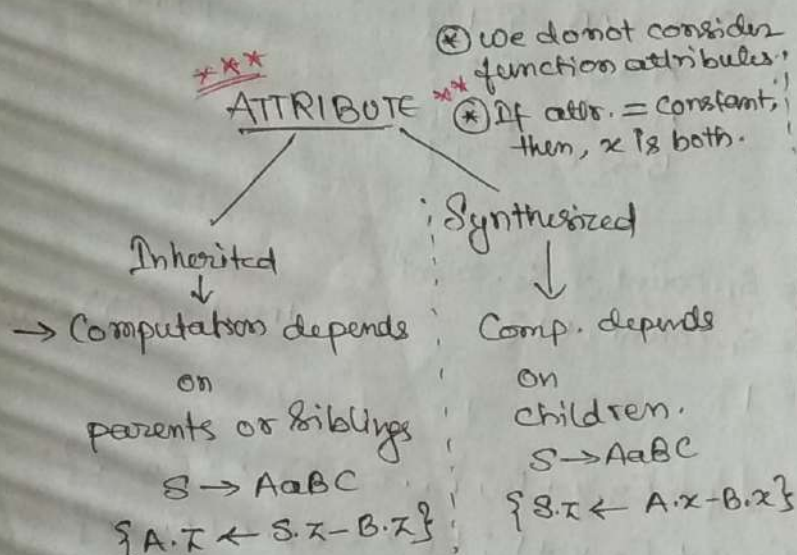 ⊛ we donot consider
function attributes.
*** 
ATTRIBUTE
** ⊛ If attr. = constant,
then, x is both.
Inherited
↓
→ Computation depends
on
parents or Siblings
S → AaBC
{A.x ← S.x - B.x}
Synthesized
↓
Comp. depends
on
children.
S → AaBC
{S.x ← A.x - B.x}